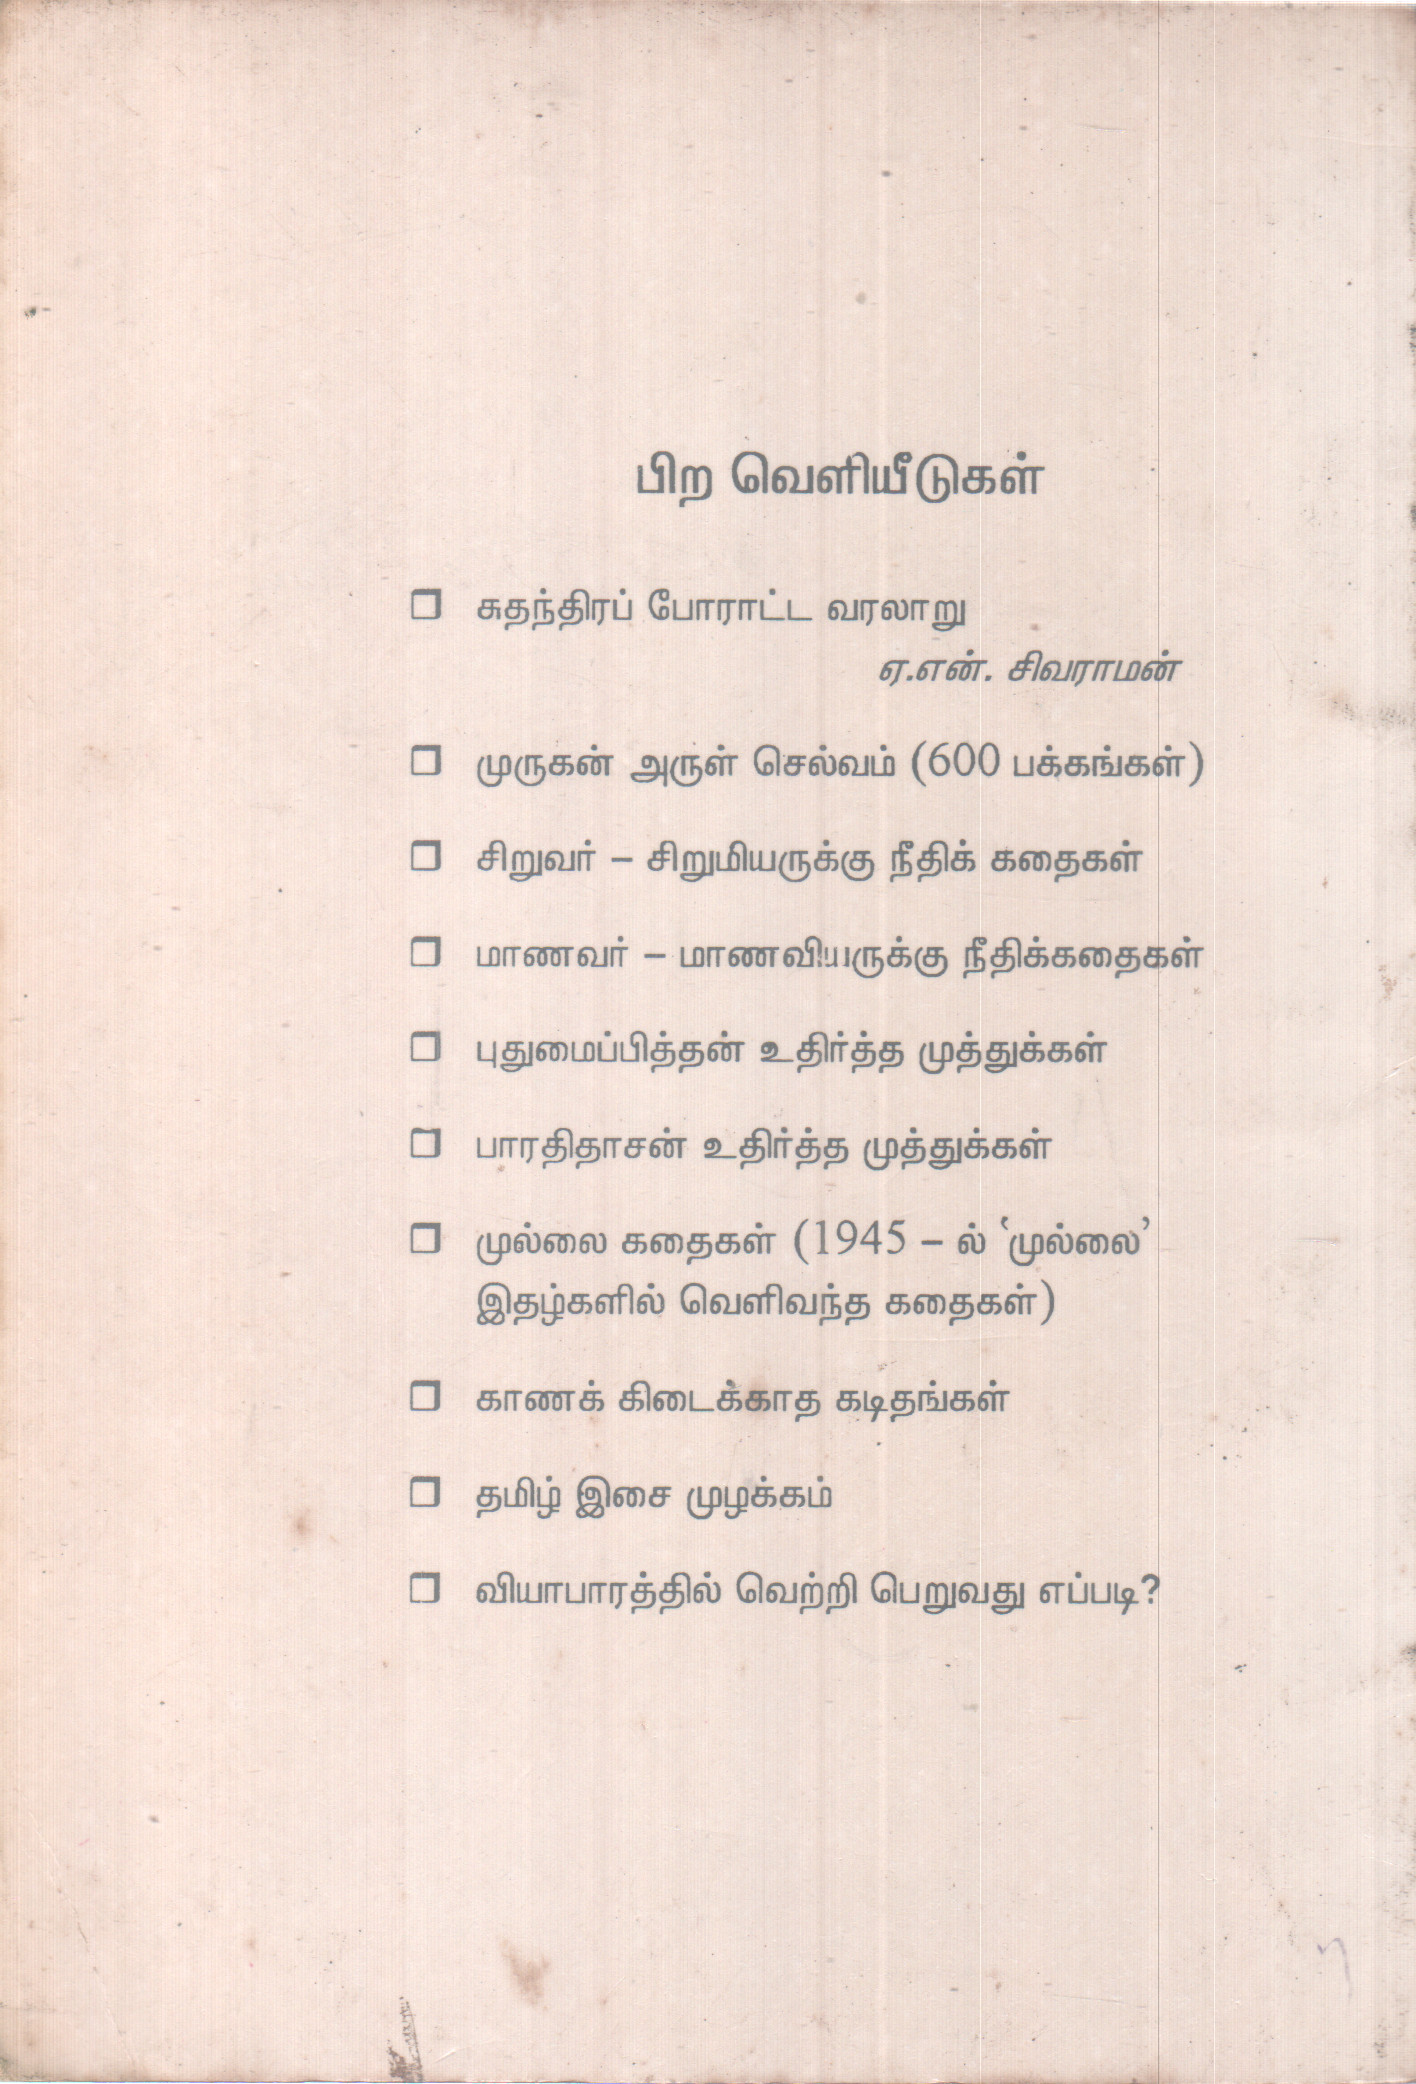 பிற வெளியீடுகள்
❒ சுதந்திரப் போராட்ட வரலாறு
ஏ.என். சிவராமன்
❒ முருகன் அருள் செல்வம் (600 பக்கங்கள்)
❒ சிறுவர் – சிறுமியருக்கு நீதிக் கதைகள்
❒ மாணவர் – மாணவியருக்கு நீதிக்கதைகள்
❒ புதுமைப்பித்தன் உதிர்த்த முத்துக்கள்
❒ பாரதிதாசன் உதிர்த்த முத்துக்கள்
❒ முல்லை கதைகள் (1945 – ல் ‘முல்லை’
இதழ்களில் வெளிவந்த கதைகள்)
❒ காணக் கிடைக்காத கடிதங்கள்
❒ தமிழ் இசை முழக்கம்
❒ வியாபாரத்தில் வெற்றி பெறுவது எப்படி?